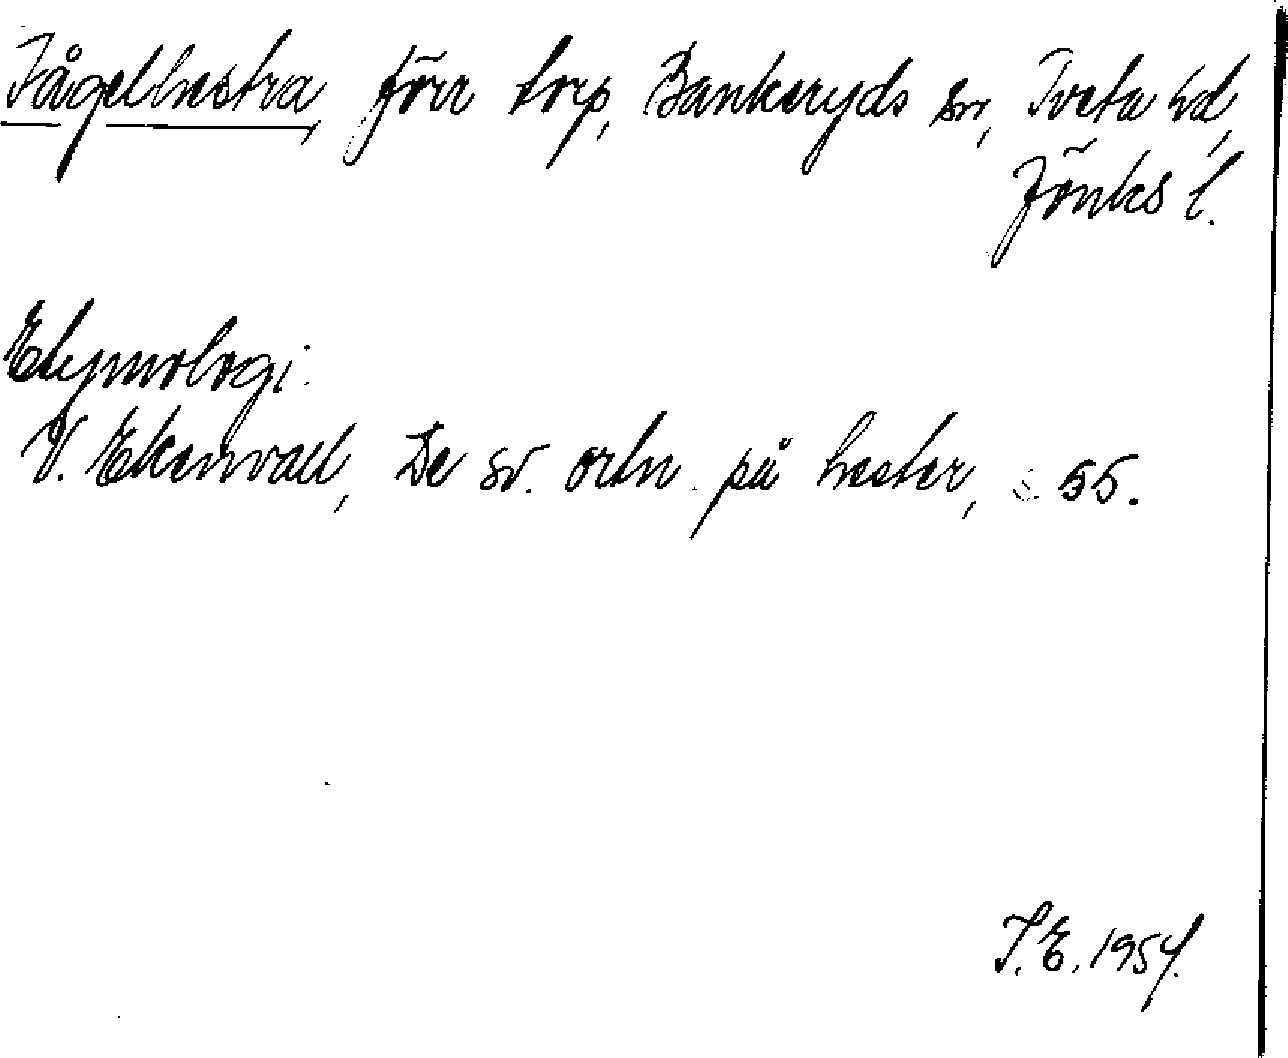 Fågelhestra, förr torp, Bankeryds sn, Tveta hd,
Jönks l.
Etymologi:
V. Ekenvall, De sv. ortn. på hester, s. 55.
I. E. 1954.